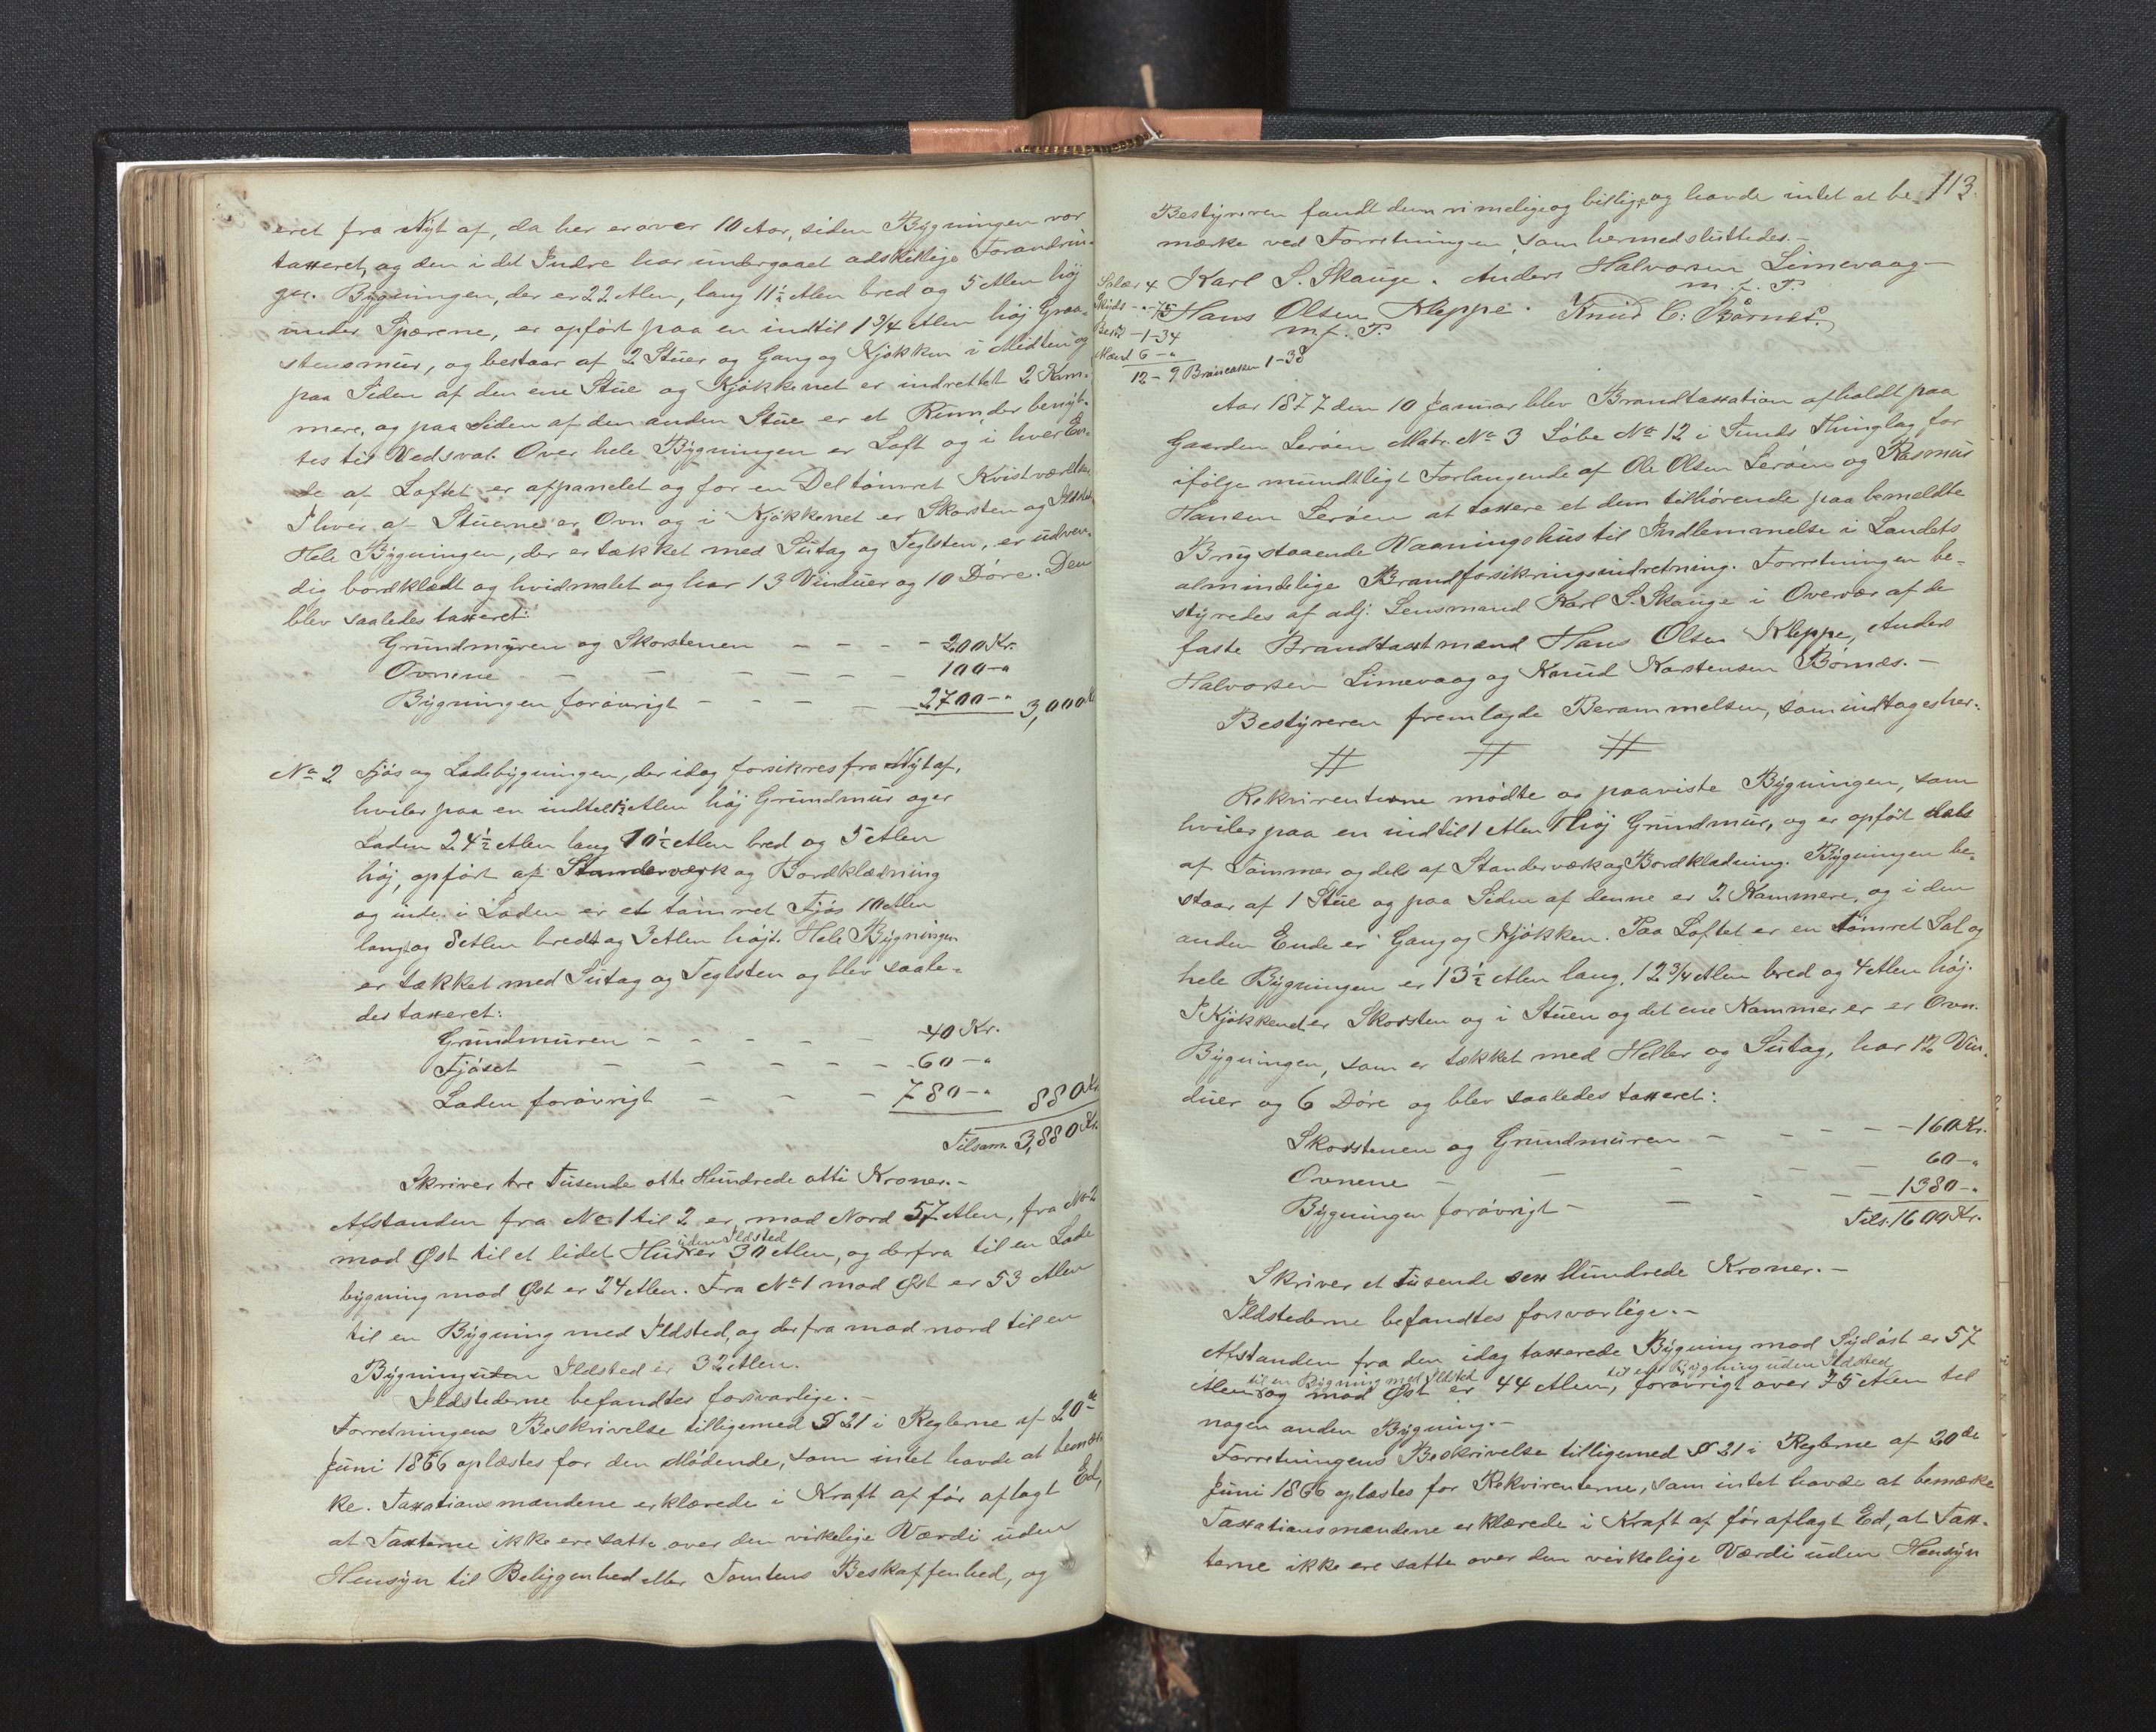 eret fra Nyt af, da her er over 10 Aar, siden Bygningen var
taxeret, og den i det Indre har undergaaet adskillige Forandrin-
ger. Bygningen, der er 22 Alen, lang 11½ Alen bred og 5 Alen høj
under Spærene, er opført paa en indtil 1¾ Alen høj Graa-
stensmur, og bestaar af 2 Stuer og Gang og Kjøkken i Midten og
paa Siden af den ene Stue og Kjøkkenet er indrettet 2 Kam-
mere, og paa Siden af den anden Stue er et Rum, der benyt-
tes til Vedsval. Over hele Bygningen er Loft og i hver En-
de af Loftet er afpanelet og for en Del tømret Kvistværelser
I hver af Stuerne er Ovn og i Kjøkkenet er Skorsten og Ildsted
Hele Bygningen, der er tækket med Sutag og Teglsten, er udven-
dig bordklædt og hvidmalet og har 13 Vinduer og 10 Døre. Den
blev saaledes taxeret:
Grundmuren og Skorstenen - - - - 200 Kr.
Ovnene - - - - - - 100 - "
Bygningen forøvrigt - - - - 2700 - " 3,000 Kr
No 2 Fjøs og Ladebygningen, der idag forsikres fra Nyt af,
hviler paa en indtil 1½ Alen høj Grundmur og er
Laden 24½ Alen lang 10½ Alen bred og 5 Alen
høj, opført af Standerværk og Bordklædning
og inde i Laden er et tømret Fjøs 10 Alen
langt og 8 Alen bredt og 3 Alen højt. Hele Bygningen
er tækket med Sutag og Teglsten og blev saale-
des taxeret:
Grundmuren - - - - - 40 Kr.
Fjøset - - - - - 60 - "
Laden forøvrigt - - - 780 - " 880 Kr.
Tilsam. 3,880 Kr.
Skriver tre Tusende otte Hundrede otti Kroner. -
Afstanden fra No 1 til 2 er mod Nord 57 Alen, fra No 2
uden Ildsted
mod Øst til et lidet Hus er 30 Alen, og derfra til en Lade
bygning mod Øst er 24 Alen. Fra No 1 mod Øst er 53 Alen
til en Bygning med Ildsted, og derfra mod nord til en
Bygning uden Ildsted er 32 Alen.
Ildstederne befandtes forsvarlige. -
Forretningens Beskrivelse tilligemed § 21 i Reglerne af 20de
Juni 1866 oplæstes for den Mødende, som intet havde at bemær-
ke. Taxationsmændene erklærede i Kraft af før aflagt Ed,
at Taxterne ikke ere satte over den virkelige Værdi uden
Hensyn til Beliggenhed eller Tomtens Beskaffenhed, og
113.
Bestyreren fandt dem rimelige og billige, og havde intet at be-
mærke ved Forretningen, som hermed sluttedes. -
Karl S. Skauge. Anders Halvorsen Limevaag -
m. f. P.
Hans Olsen Kleppe. Knud C: Børnes.
m. f. P.
4
- " - 75
- 1 - 34
Mænd 6 - "
12 - 9 1 - 38
Aar 1877 den 10 Januar blev Brandtaxation afholdt paa
Gaarden Lerøen Matr. No 3 Løbe No 12 i Sunds Thinglag for
ifølge mundtligt Forlangende af Ole Olsen Lerøen og Rasmus
Hansen Lerøen at taxere et dem tilhørende paa bemeldte
Brug staaende Vaaningshus til Indlemmelse i Landets
almindelige Brandforsikringsindretning. Forretningen be-
styredes af adj: Lensmand Karl S. Skauge i Overvær af de
faste Brandtaxtmænd Hans Olsen Kleppe, Anders
Halvorsen Limevaag og Knud Karstensen Børnes. -
Bestyreren fremlagde Berammelsen, som indtages her.
# # #
Rekvirenterne mødte og paaviste Bygningen, som
hviler paa en indtil 1 Alen høj Grundmur, og er opført dels
af Tømmer og dels af Standerværk og Bordklædning. Bygningen be-
staar af 1 Stue og paa Siden af denne er 2 Kammere, og i den
anden Ende er Gang og Kjøkken. Paa Loftet er en tømret Sal og
hele Bygningen er 13½ Alen lang, 12¾ Alen bred og 4 Alen høj.
I Kjøkkenet er Skorsten og i Stuen og det ene Kammer er er Ovn.
Bygningen, som er tækket med Heller og Sutag, har 12 Vin-
duer og 6 Døre og blev saaledes taxeret:
Skorstenen og Grundmuren - - - - - 160 Kr.
Ovnene - - - - - 60 - "
Bygningen forøvrigt - - - - - 1380 - "
Tils. 1600 Kr.
Skriver et Tusende sex Hundrede Kroner. -
Ildstederne befandtes forsvarlige. -
Afstanden fra den idag taxerede Bygning mod Sydøst er 57
til en Bygning med Ildsted til en Bygning uden Ildsted
Alen og mod Øst er 44 Alen, forøvrigt over 75 Alen til
nogen anden Bygning. -
Forretningens Beskrivelse tilligemed § 21 i Reglerne af 20de
Juni 1866 oplæstes for Rekvirenterne, som intet havde at bemærke
Taxationsmændene erklærede i Kraft af før aflagt Ed, at Tax-
terne ikke ere satte over den virkelige Værdi uden Hensyn